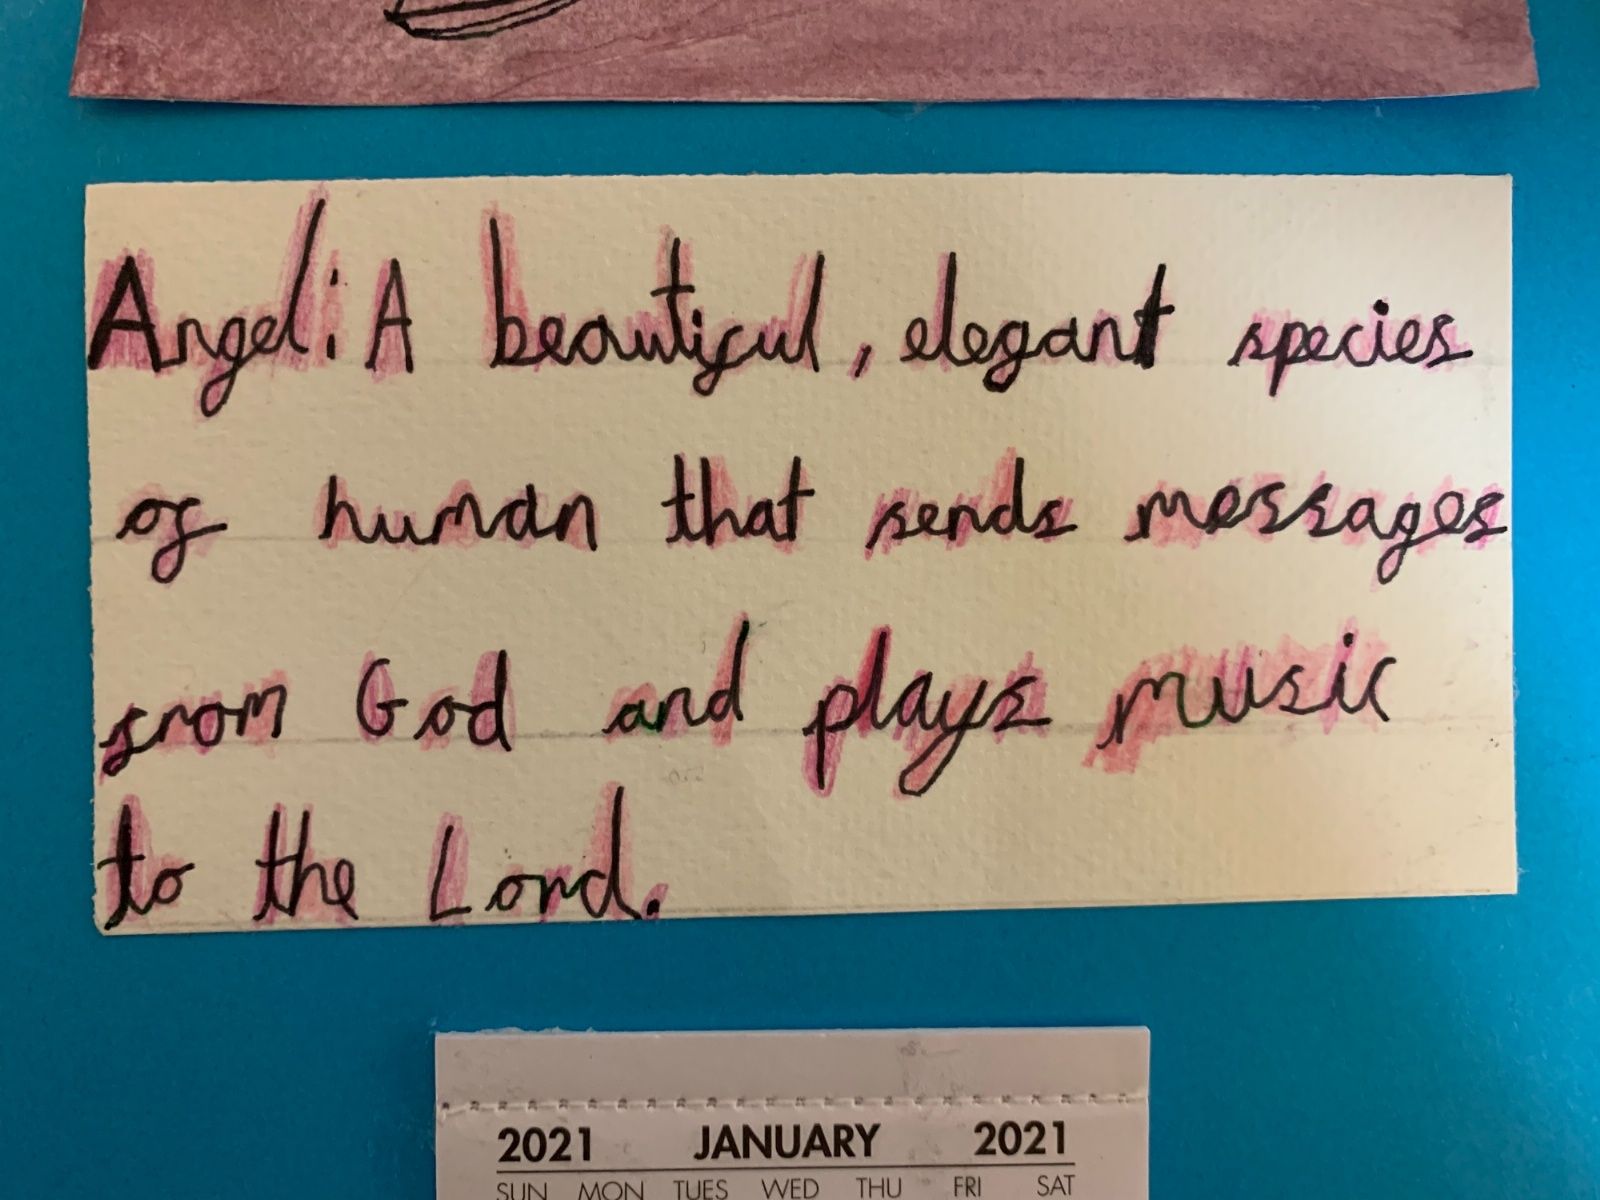 Angel: A beautiful, elegant species
of human that sends messages
from God and plays music
to the Lord.
2021 JANUARY 2021
SUN MON TUES WED THU FRI SAT